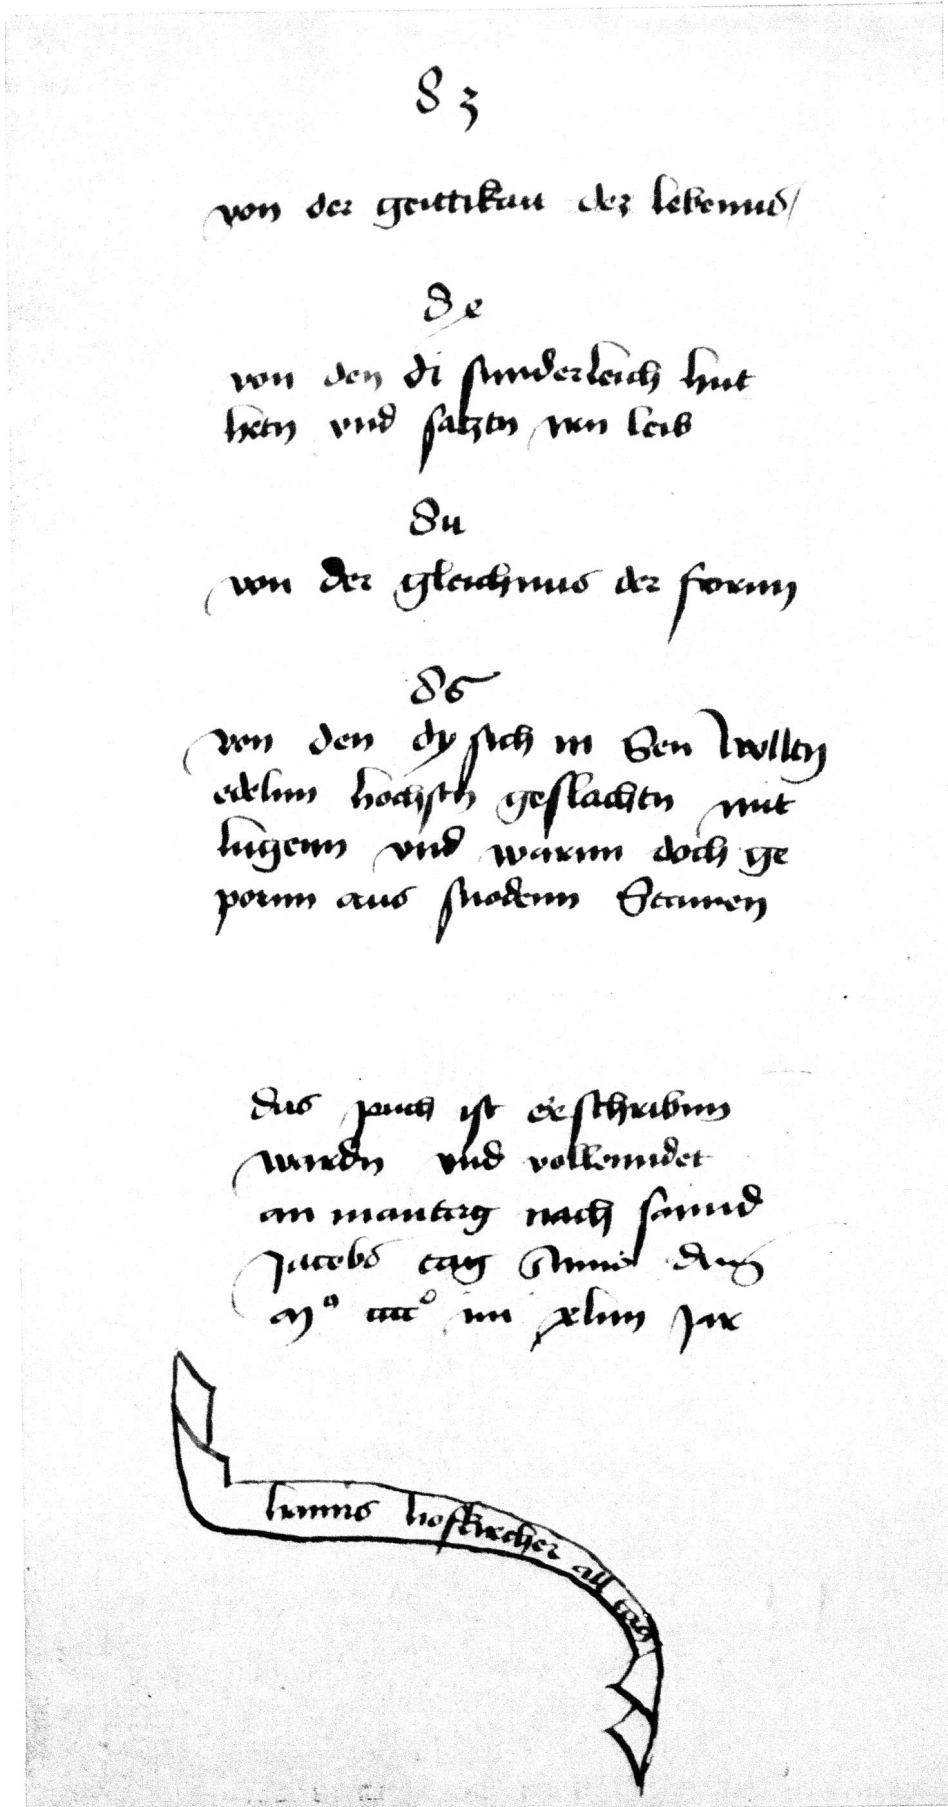 83
von der geittikait der lebennd
84
von den di sunderleich hut
hetn vnd satztn irn leib
85
von der gleichnus der form
86
von den dy sich in den wolltn
edelnn hochstn geslachtn mit
lugenn vnd warnn doch ge
pornn aus snodenn Stamen
das puch ist geschribnn
wardn vnd vollenndet
an mantag nach sannd
Jacobs tag Anno dni
mo cccco im xliiii Jar
hanns hofkircher all tag